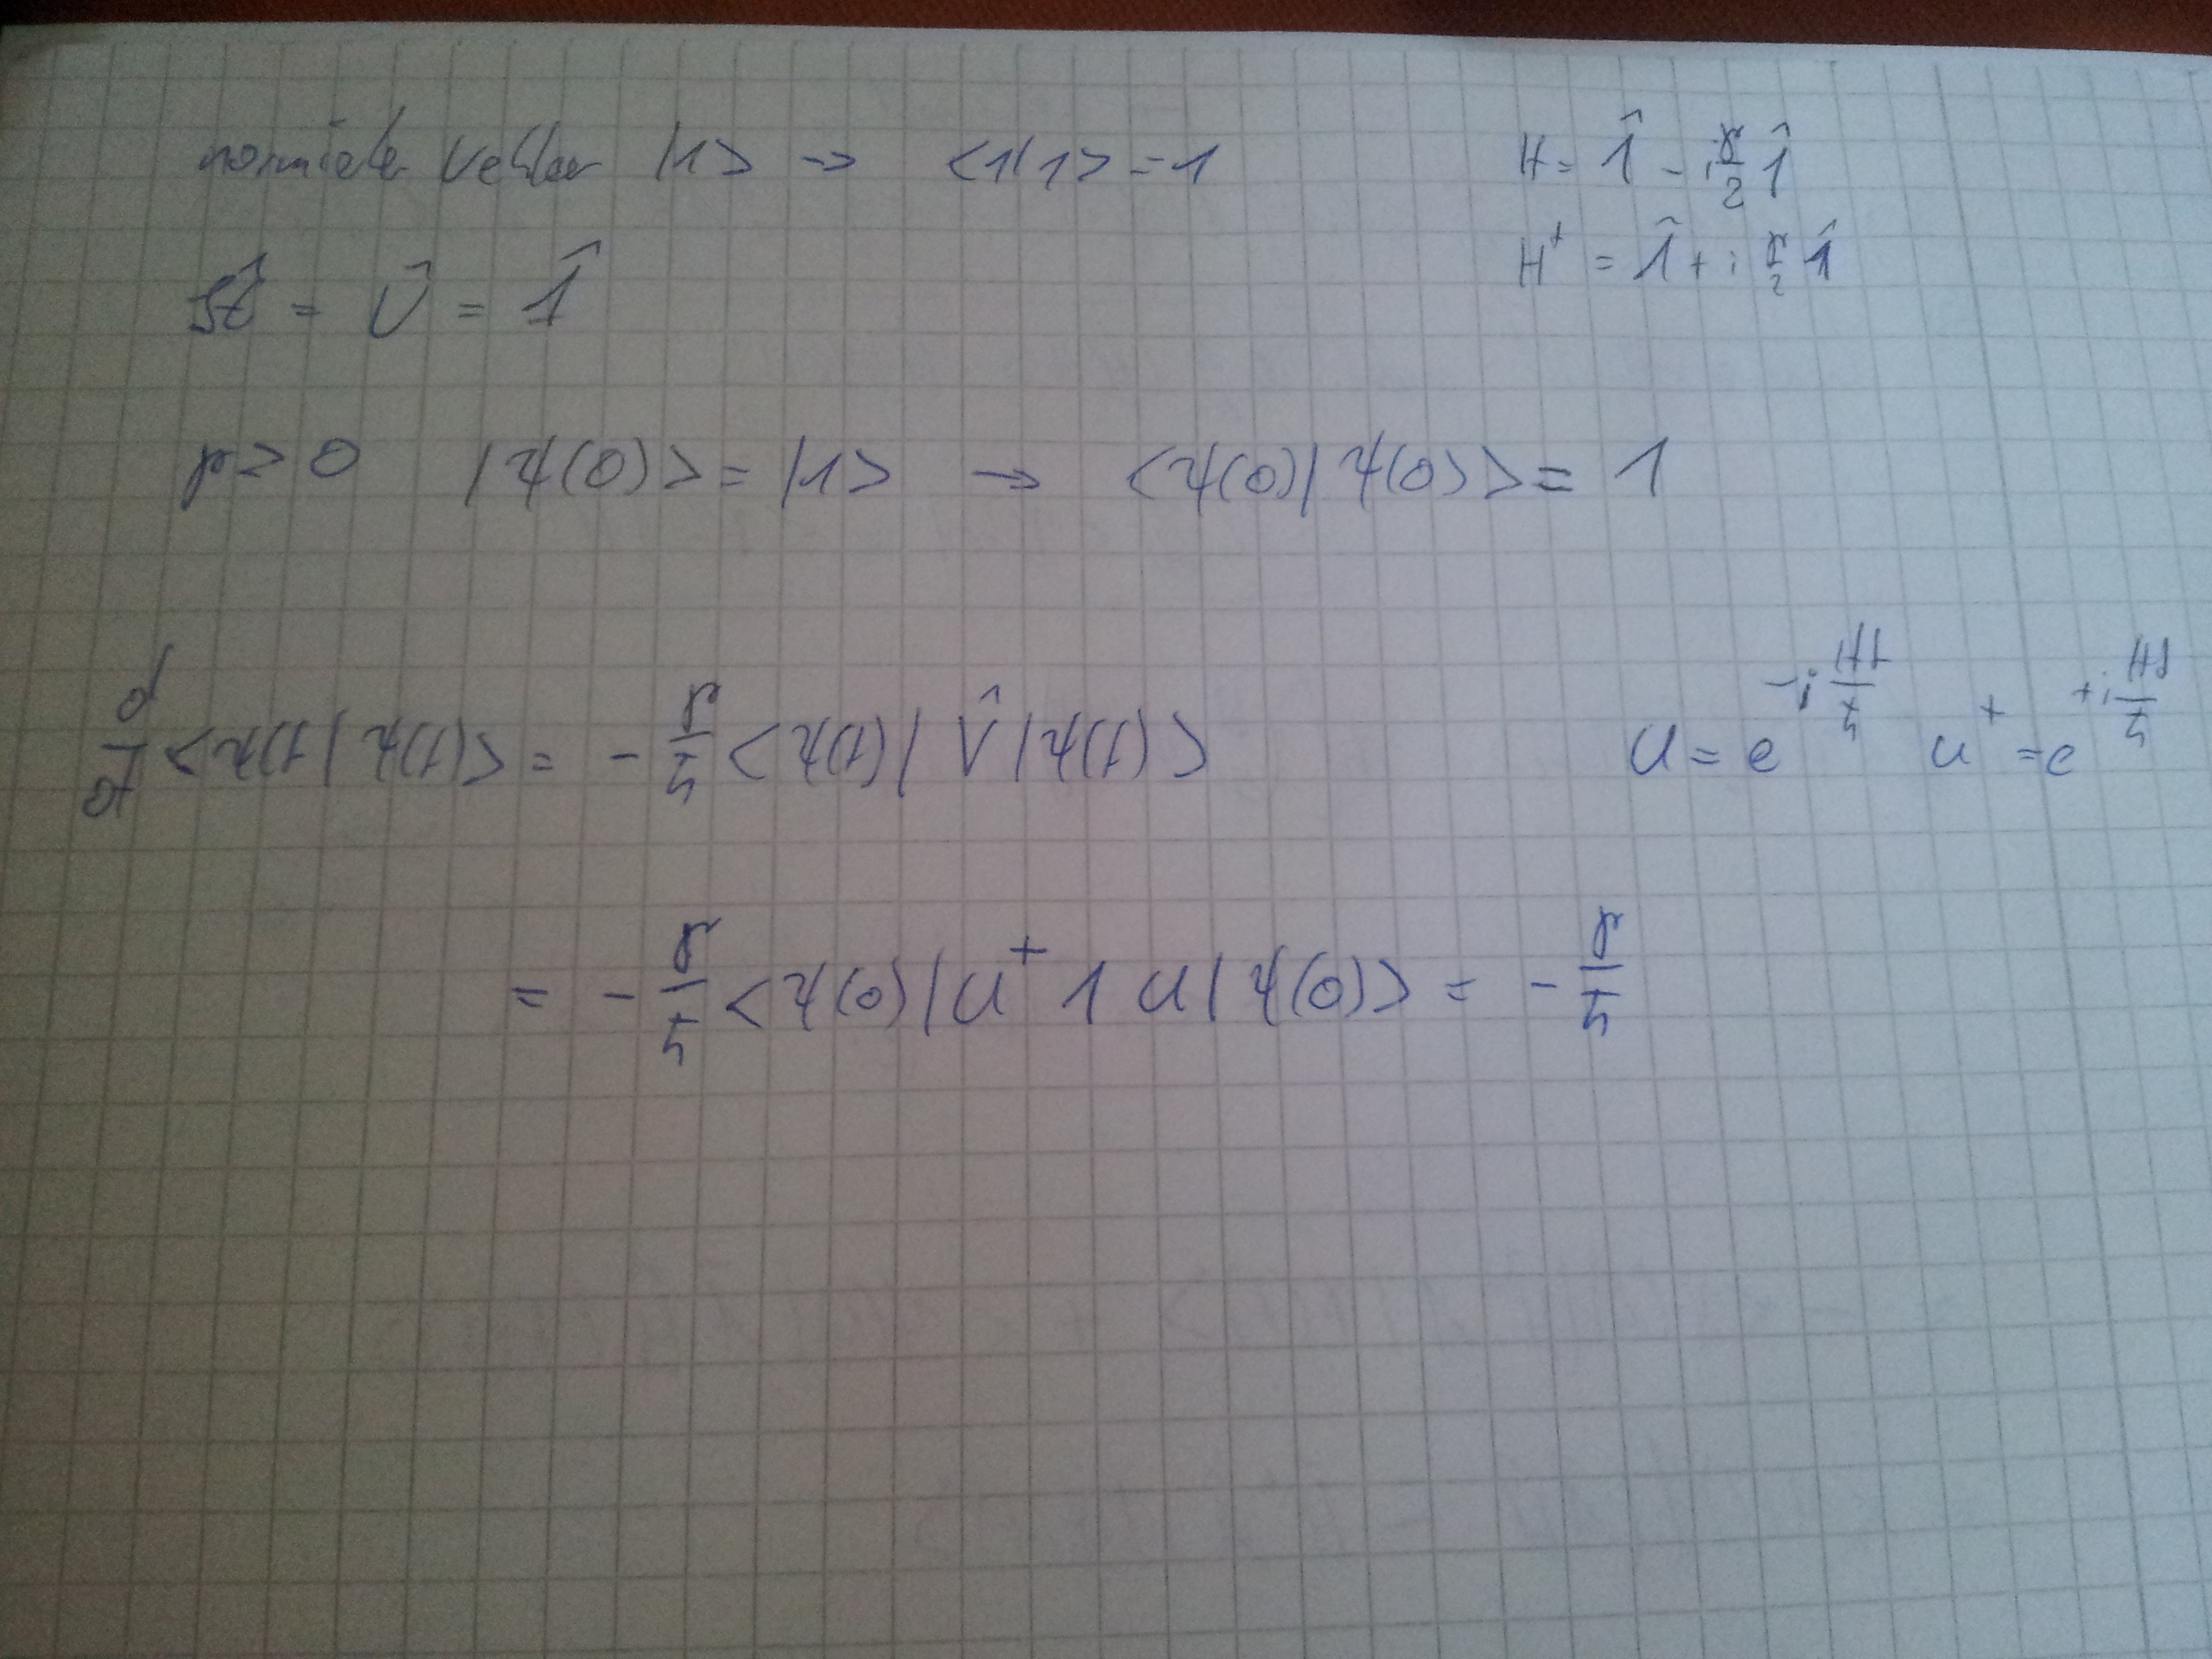 normierter Vektor |1> → <1|1> = 1
H = 1̂ - i γ/2 1̂
H⁺ = 1̂ + i γ/2 1̂
Ĥ = V̂ = 1̂
γ ≥ 0 |ψ(0)> = |1> → <ψ(0)|ψ(0)> = 1
d/dt <ψ(t|ψ(t)> = - γ/ħ <ψ(t)|V̂|ψ(t)>
U = e^(-i Ht/ħ) U⁺ = e^(+i Ht/ħ)
= - γ/ħ <ψ(0)|U⁺ 1 U|ψ(0)> = - γ/ħ